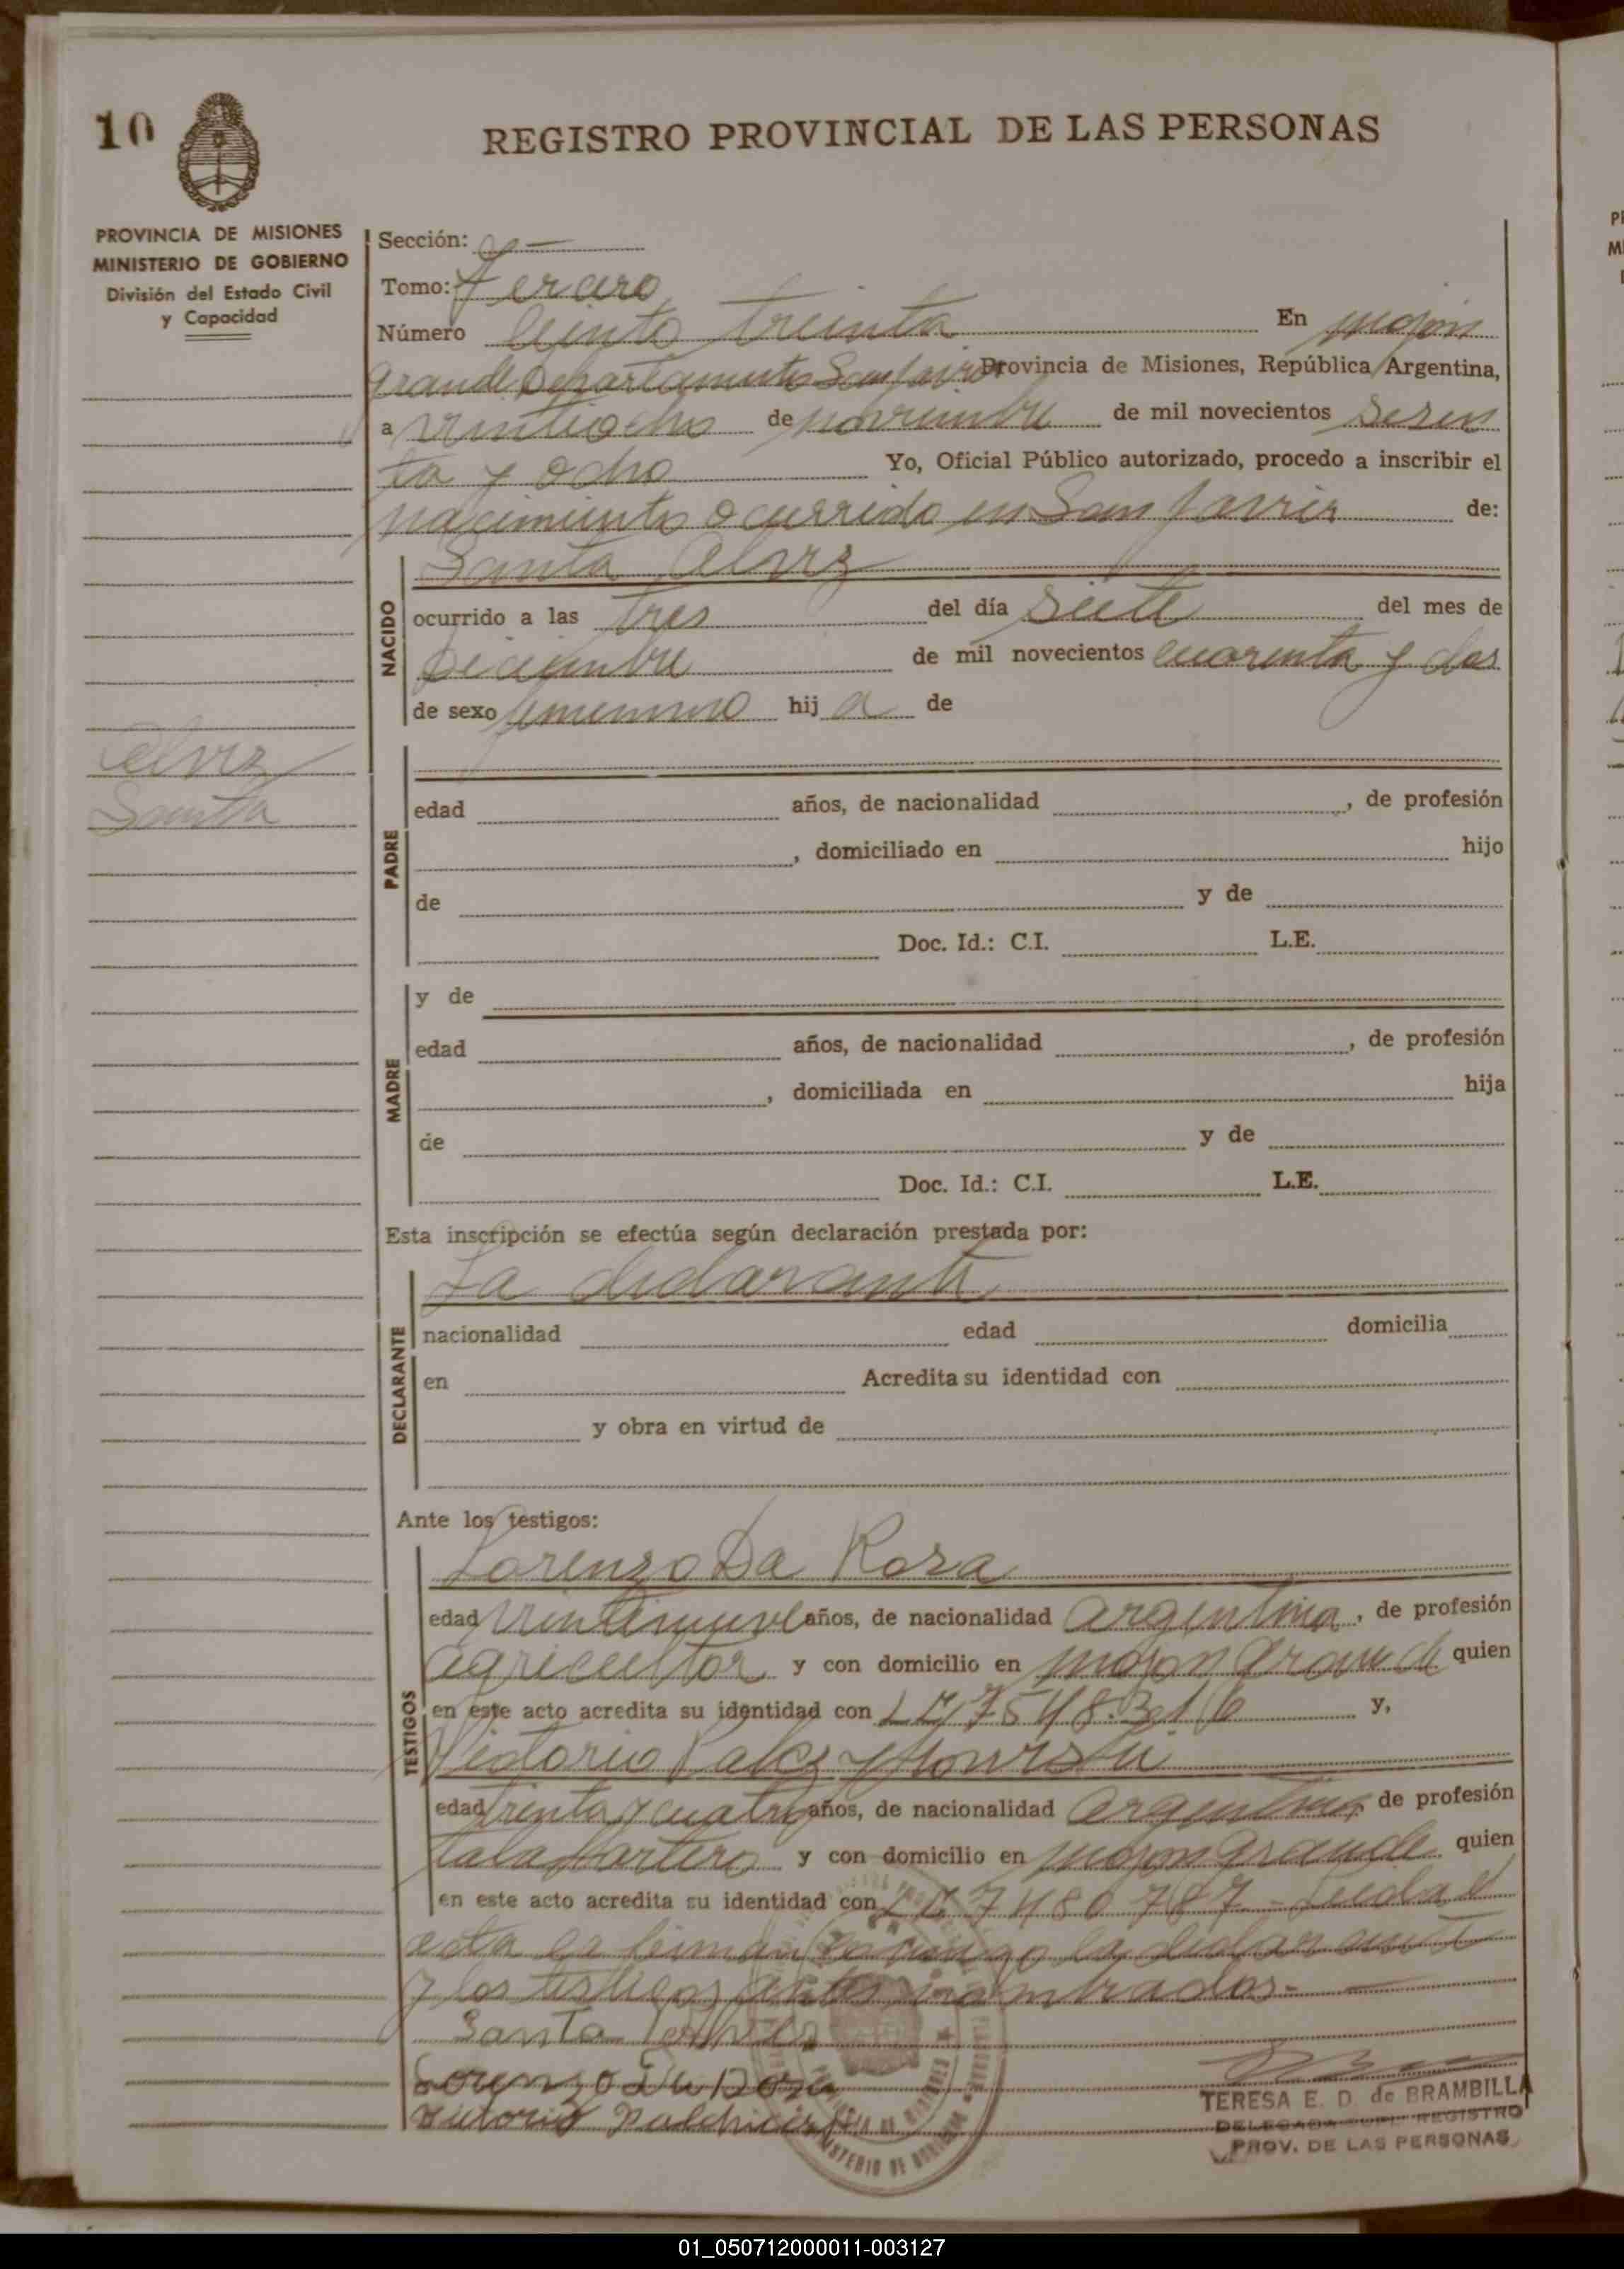 10
REGISTRO PROVINCIAL DE LAS PERSONAS
PROVINCIA DE MISIONES
MINISTERIO DE GOBIERNO
División del Estado Civil
y Capacidad
Sección:
Tomo: Tercero
Número Ciento treinta En mojon
grande Departamento San Javier Provincia de Misiones, República Argentina,
a veintiocho de noviembre de mil novecientos sesen
ta y ocho Yo, Oficial Público autorizado, procedo a inscribir el
nacimiento ocurrido en San Javier de:
NACIDO
Santa Alvez
ocurrido a las tres del día siete del mes de
Diciembre de mil novecientos cuarenta y dos
de sexo femenino hij a de
Alvez
Santa
PADRE
edad años, de nacionalidad , de profesión
, domiciliado en hijo
de y de
Doc. Id.: C.I. L.E.
MADRE
y de
edad años, de nacionalidad , de profesión
, domiciliada en hija
de y de
Doc. Id.: C.I. L.E.
Esta inscripción se efectúa según declaración prestada por:
DECLARANTE
La declarante
nacionalidad edad domicilia
en Acredita su identidad con
y obra en virtud de
Ante los testigos:
TESTIGOS
Lorenzo Da Rosa
edad veintinueve años, de nacionalidad argentina, de profesión
agricultor y con domicilio en mojon grande quien
en este acto acredita su identidad con 7548.316 y,
Victorio
edad treinta y cuatro años, de nacionalidad argentina, de profesión
talabartero y con domicilio en mojon grande quien
en este acto acredita su identidad con 7480787 - Leida el
acta la firman conmigo la declarante
y los testigos antes nombrados.-
Santa Alves
Lorenzo Da Rosa
Victorio
TERESA E. D. de BRAMBILLA
DELEGADA REGISTRO
PROV. DE LAS PERSONAS
01_050712000011-003127